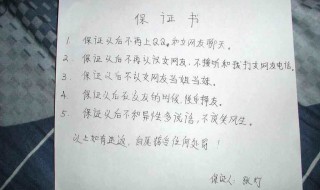 保证书
1. 保证以后不再上QQ。和女网友聊天。
2. 保证以后不再认识女网友、不接听和拨打女网友电话。
3. 保证以后不认女网友当姐当妹。
4. 保证以后在交友的时候,慎重择友。
5. 保证以后不和异性多说话,不谈笑风生。
以上如有违返,自愿接受任何处罚!
保证人:张灯